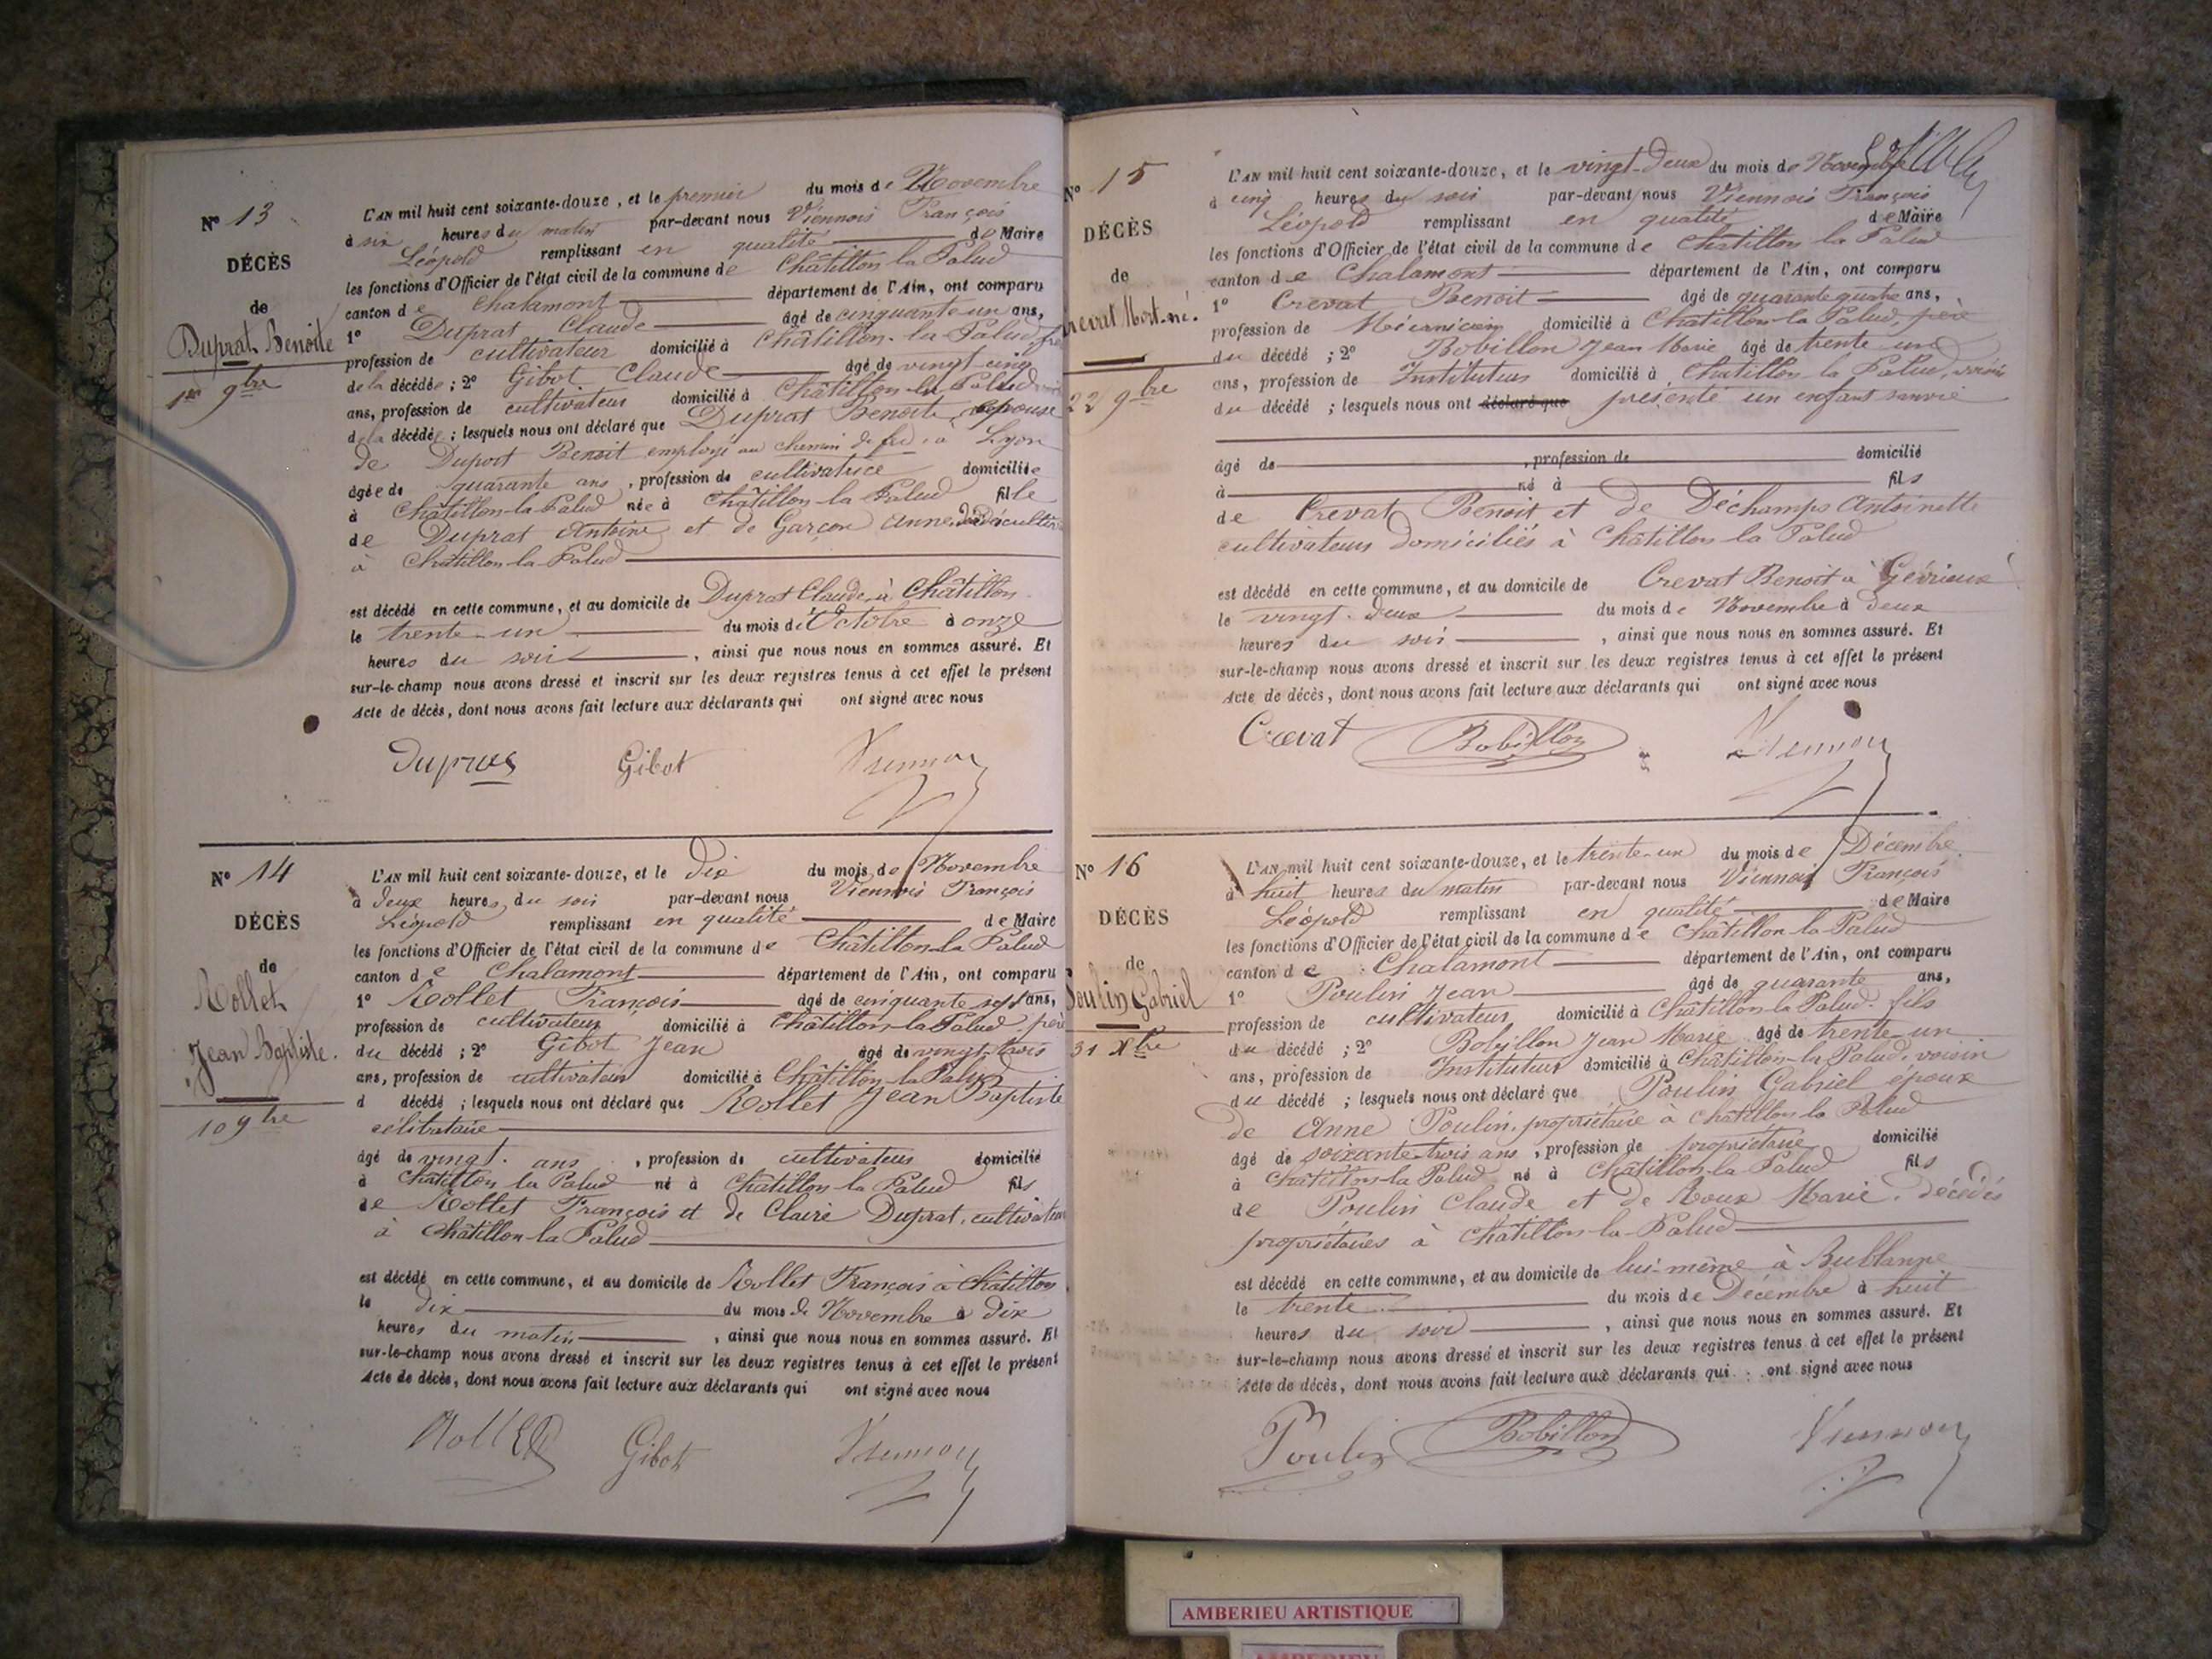 N° 13
DÉCÈS
de
Duprat Benoite
1er 9bre
L'AN mil huit cent soixante-douze, et le premier du mois de Novembre
à six heures du matin par-devant nous Viennois François
Léopold remplissant en qualité de Maire
les fonctions d'Officier de l'état civil de la commune de Châtillon la Palud
canton de Chalamont département de l'Ain, ont comparu
1° Duprat Claude âgé de cinquante-un ans,
profession de cultivateur domicilié à Châtillon-la-Palud
de la décédée ; 2° Gibot Claude âgé de vingt-cinq
ans, profession de cultivateur domicilié à Châtillon-la-Palud
de la décédée ; lesquels nous ont déclaré que Duprat Benoite, épouse
de Duport Benoit employé au chemin de fer, à Lyon
âgée de quarante ans, profession de cultivatrice domiciliée
à Châtillon-la-Palud née à Châtillon-la-Palud fille
de Duprat Antoine et de Garçon Anne
à Châtillon-la-Palud
est décédé en cette commune, et au domicile de Duprat Claude, à Châtillon
le trente-un du mois d'Octobre à onze
heures du soir, ainsi que nous nous en sommes assuré. Et
sur-le-champ nous avons dressé et inscrit sur les deux registres tenus à cet effet le présent
Acte de décès, dont nous avons fait lecture aux déclarants qui ont signé avec nous
Gibot
N° 14
DÉCÈS
de
Rollet
Jean Baptiste.
10 9bre
L'AN mil huit cent soixante-douze, et le Dix du mois de Novembre
à Deux heures du soir par-devant nous Viennois François
Léopold remplissant en qualité de Maire
les fonctions d'Officier de l'état civil de la commune de Châtillon la Palud
canton de Chalamont département de l'Ain, ont comparu
1° Rollet François âgé de cinquante sept ans,
profession de cultivateur domicilié à Châtillon la Palud, père
du décédé ; 2° Gibot Jean âgé de vingt-trois
ans, profession de cultivateur domicilié à Châtillon la Palud
d décédé ; lesquels nous ont déclaré que Rollet Jean Baptiste
célibataire
âgé de vingt ans, profession de cultivateur domicilié
à Châtillon la Palud né à Châtillon la Palud fils
de Rollet François et de Claire Duprat, cultivateurs
à Châtillon-la-Palud
est décédé en cette commune, et au domicile de Rollet François à Châtillon
le dix du mois de Novembre à dix
heures du matin, ainsi que nous nous en sommes assuré. Et
sur-le-champ nous avons dressé et inscrit sur les deux registres tenus à cet effet le présent
Acte de décès, dont nous avons fait lecture aux déclarants qui ont signé avec nous
Rollet Gibot
N° 15
DÉCÈS
de
Crevat Mort-né.
22 9bre
L'AN mil huit cent soixante-douze, et le vingt-Deux du mois de Novembre
à cinq heures du soir par-devant nous Viennois François
Léopold remplissant en qualité de Maire
les fonctions d'Officier de l'état civil de la commune de Châtillon la Palud
canton de Chalamont département de l'Ain, ont comparu
1° Crevat Benoit âgé de quarante quatre ans,
profession de Mécanicien domicilié à Châtillon-la-Palud, père
du décédé ; 2° Bobillon Jean Marie âgé de trente un
ans, profession de Instituteur domicilié à Châtillon la Palud, voisin
du décédé ; lesquels nous ont déclaré que présenté un enfant sans vie
âgé de , profession de domicilié
à né à fils
de Crevat Benoit et de Déchamps Antoinette
cultivateurs domiciliés à Châtillon la Palud
est décédé en cette commune, et au domicile de Crevat Benoit à Gévrieux
le vingt-deux du mois de Novembre à Deux
heures du soir, ainsi que nous nous en sommes assuré. Et
sur-le-champ nous avons dressé et inscrit sur les deux registres tenus à cet effet le présent
Acte de décès, dont nous avons fait lecture aux déclarants qui ont signé avec nous
Crevat Bobillon
N° 16
DÉCÈS
de
Poulin Gabriel
31 Xbre
L'AN mil huit cent soixante-douze, et le trente-un du mois de Décembre
à huit heures du matin par-devant nous Viennois François
Léopold remplissant en qualité de Maire
les fonctions d'Officier de l'état civil de la commune de Châtillon la Palud
canton de Chalamont département de l'Ain, ont comparu
1° Poulin Jean âgé de quarante ans,
profession de cultivateur domicilié à Châtillon la Palud, fils
du décédé ; 2° Bobillon Jean Marie âgé de trente-un
ans, profession de Instituteur domicilié à Châtillon-la-Palud, voisin
du décédé ; lesquels nous ont déclaré que Poulin Gabriel époux
de Anne Poulin, propriétaire à Châtillon la Palud
âgé de soixante-trois ans, profession de propriétaire domicilié
à Châtillon-la-Palud né à Châtillon-la-Palud fils
de Poulin Claude et de Roux Marie, décédés
propriétaires à Châtillon-la-Palud
est décédé en cette commune, et au domicile de lui-même à Bublanne
le trente du mois de Décembre à huit
heures du soir, ainsi que nous nous en sommes assuré. Et
sur-le-champ nous avons dressé et inscrit sur les deux registres tenus à cet effet le présent
Acte de décès, dont nous avons fait lecture aux déclarants qui ont signé avec nous
Poulin Bobillon
AMBERIEU ARTISTIQUE
AMBERIEU